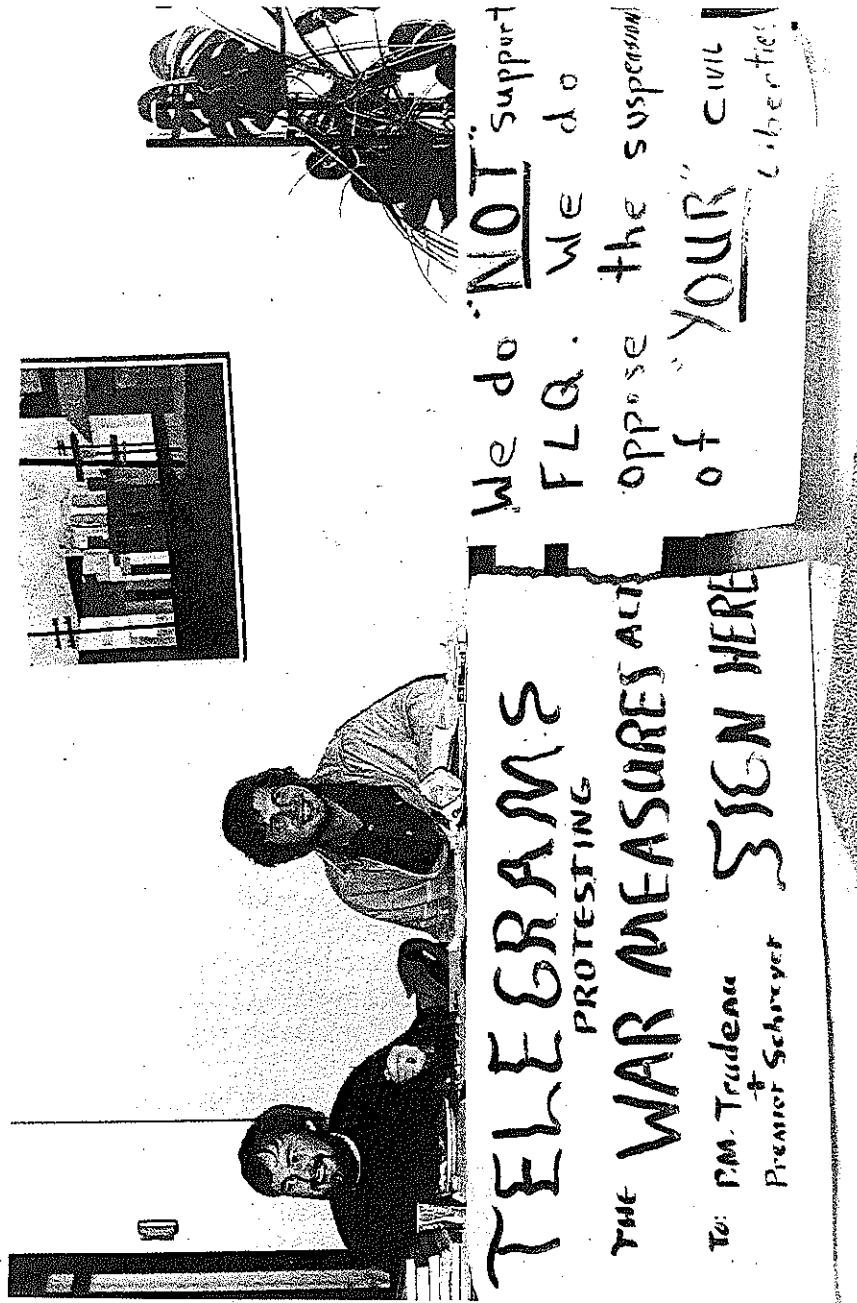 TELEGRAMS
PROTESTING
THE WAR MEASURES ACT
TO: P.M. Trudeau
+
Premier Schreyer
SIGN HERE
We do "NOT" support
FLQ. We do
oppose the suspension
of "YOUR" CIVIL
Liberties.